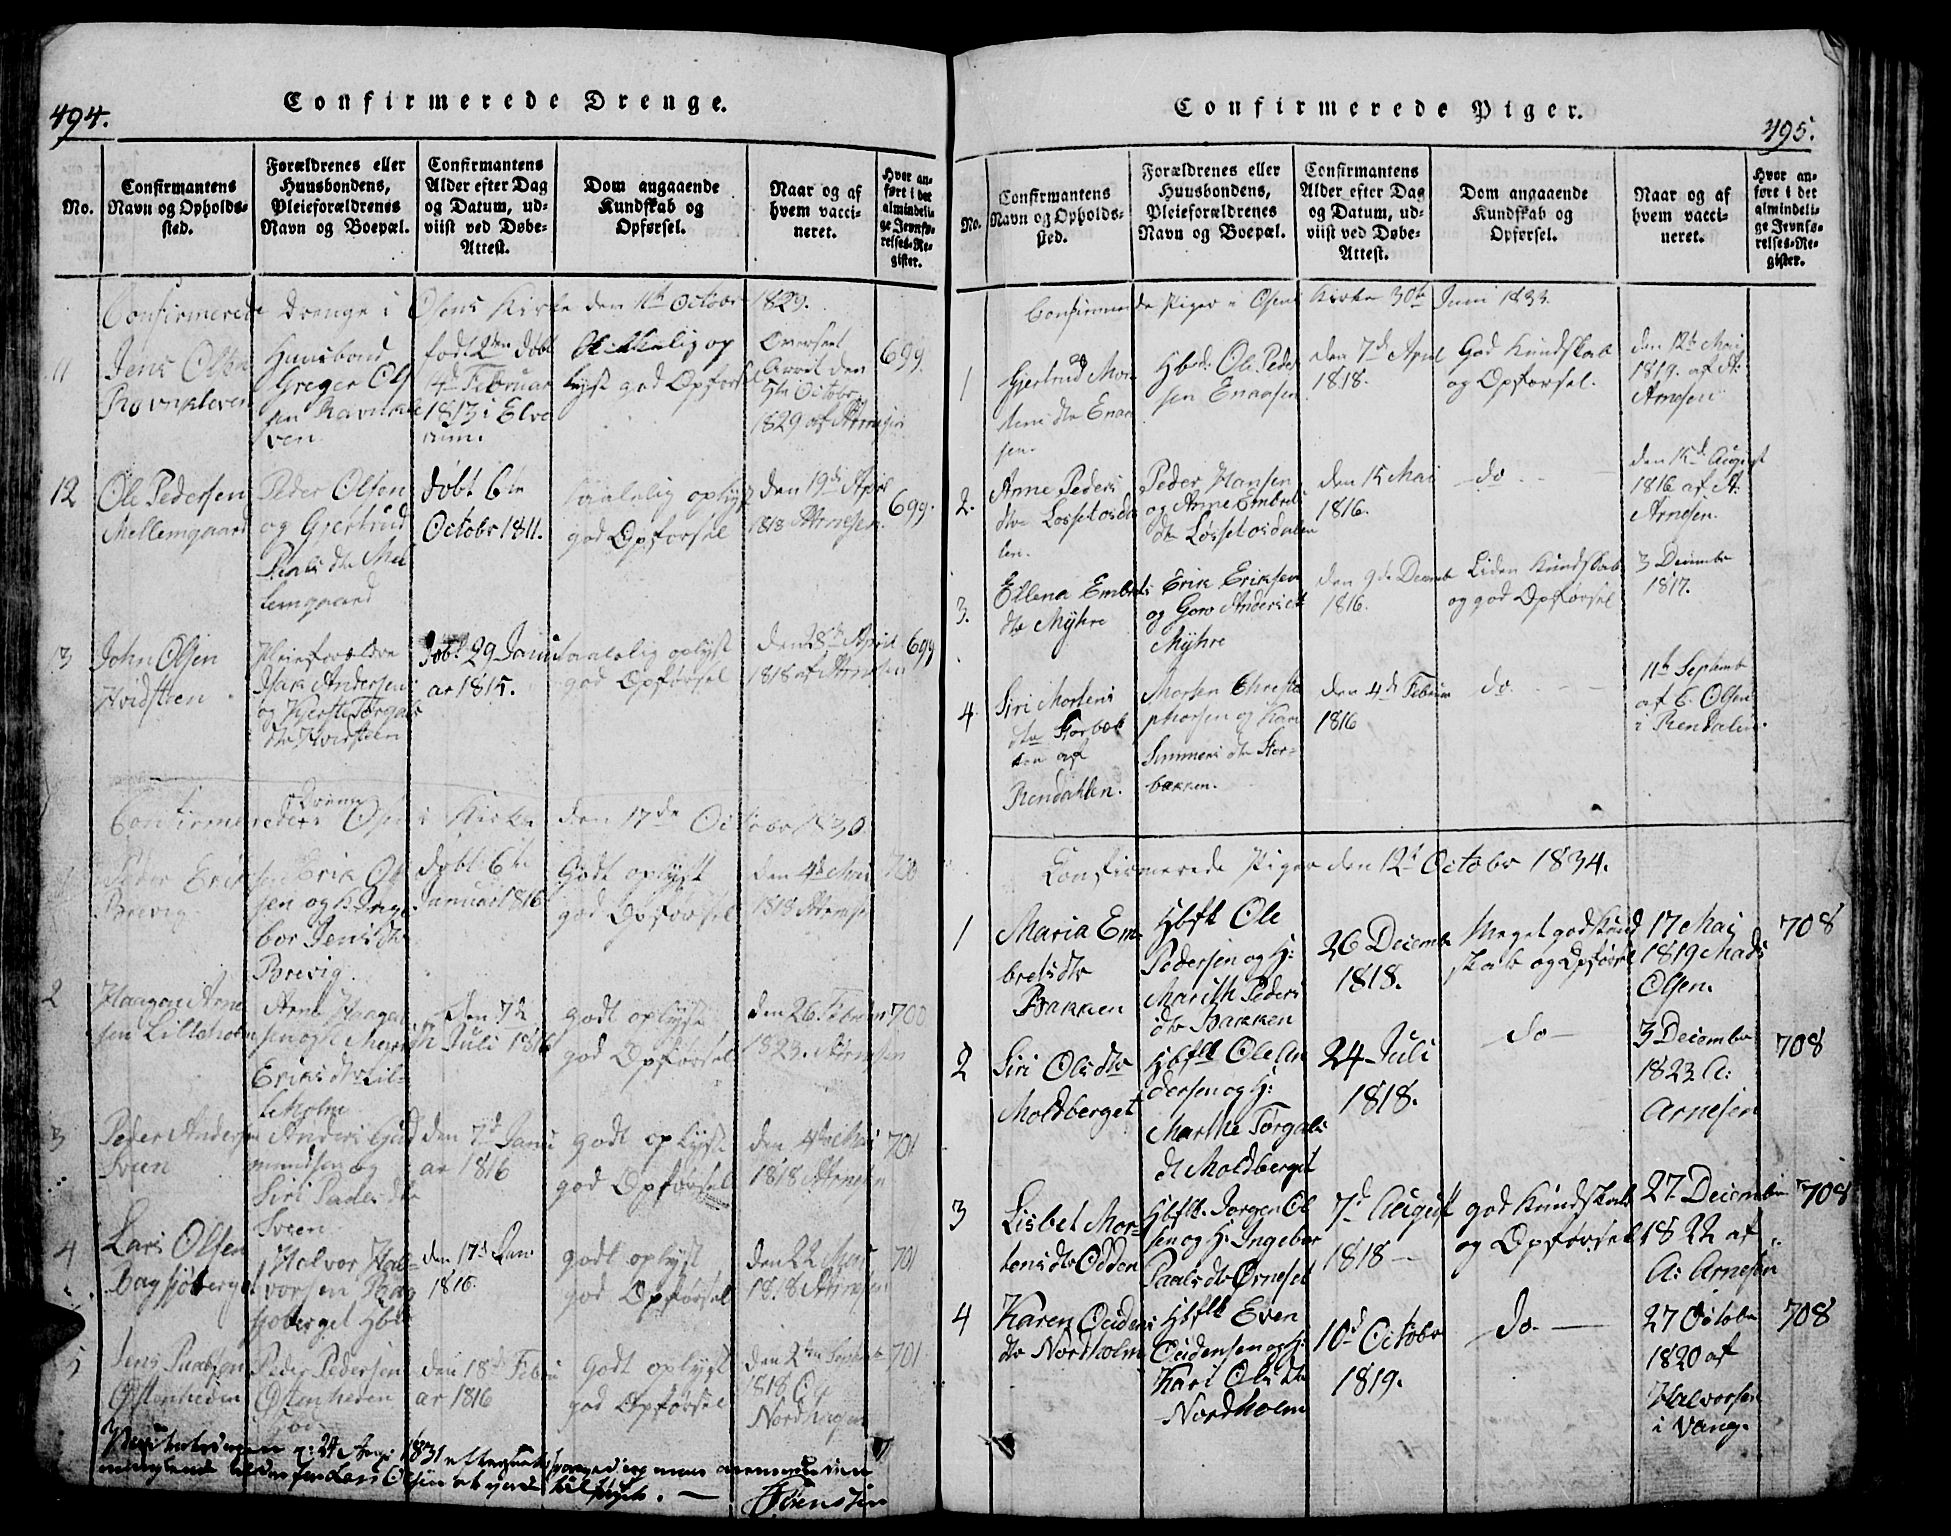 494.
Confirmerede Drenge.
No.
Confirmantens Navn og Opholds-sted.
Forældrenes eller Huusbondens, Pleieforældrenes Navn og Boepæl.
Confirmantens Alder efter Dag og Datum, ud-viist ved Døbe-Attest.
Dom angaaende Kundskab og Opførsel.
Naar og af hvem vacci-neret.
Hvor an-ført i det almindeli-ge Jevnfø-relses-Re-gister.
Confirmerede Drenge i Osens Kirke den 11te Octobr 1829.
11
Jens Olsen
Ravnkleven
Huusbond
Greger Ol
sen Ravnkle
ven.
født 2den døbt
14d Februar
1813 i Elve
rum.
op
lyst god Opførsel
Attest den
5te Octobr
1829 af Arnesen
699.
12
Ole Pedersen
Mellemgaard
Peder Olsen
og Gjertrud
Pauls dtr Mel
lemgaard
døbt 6te
Octobr 1811.
taalelig oplyst
god Opførsel
den 19de April
1818 Arnesen.
699.
13
John Olsen
Hvidsteen.
Pleieforældre
Isak Andersen
og Kjersti Torgals
dtr Hvidsteen
Døbt 29 Janu
ar 1815.
taalelig oplyst
god Opførsel
den 28de April
1818 af Arnesen
699
Confirmerede Drenge i Osens Kirke den 17de Octobr 1830
Peder Erik
sen
Brevig.
Erik Ol
sen og K: Inge
bor Jens dtr
Brevig.
døbt 6te
Januar 1816
Godt oplyst
god Opførsel
den 4de Mai
1818 Arnesen
700
2
Haagen Arne
sen Lilleholm
Arne Haagen
sen og K Marith
Eriks dtr Lil-
leholm
den 7de
Juli 1816
godt oplyst
god Opførsel
den 26. Februar
1823. Arnesen
700
3
Peder Andersen
Sveen
Anders Gud
mundsen og
Siri Peders dtr
Sveen
den 7d Janu
ar 1816
godt oplyst
god Opførsel
den 4de Mai
1818 Arnesen
701
4
Lars Olsen
Bagsjøberget
Halvor Hal-
vorsen Bag
sjøberget Hbd
den 17d Jan
1816.
godt oplyst
god Opførsel
den 22 Mai
1818 Arnesen
701
5
Jens Pedersen
Østenheden
Peder Pedersen
Østenheden
den 18d Febru
ar 1816
Godt oplyst
god Opførsel
den 2den Septembr
1818
Nordhagen
701
1831
Lars Olsen
495.
Confirmerede Piger.
No.
Confirmantens Navn og Opholds-sted.
Forældrenes eller Huusbondens, Pleieforældrenes Navn og Boepæl.
Confirmantens Alder efter Dag og Datum, ud-viist ved Døbe-Attest.
Dom angaaende Kundskab og Opførsel.
Naar og af hvem vacci-neret.
Hvor an-ført i det almindeli-ge Jevnfø-relses-Re-gister.
Confirmerede Piger i Osens Kirke 30te Juni 1833.
1
Gjertrud Mor
tens dtr Enaa
sen.
Hbd: Ole Peder
sen Enaasen
den 7d April
1818.
God Kundskab
og Opførsel.
den 12te Mai
1819. af A:
Arnesen
2.
Anne Peders
dtr Løssetosda
len.
Peder Hansen
og Anne Embrets
dtr Løssetosdalen
den 15 Mai
1816.
do
den 15d August
1816 af A:
Arnesen.
3.
Ellena Embrets
dtr Myhre
Erik Eriksen
og Goro Anders dtr
Myhre
den 9de Decembr
1816.
Liden Kundskab
og god Opførsel
3 Decembr
1817.
4.
Siri Mortens
dtr Storbek
ken af
Rendahlen.
Morten Christo
phersen og Kari
Simmens dtr Stor-
bækken.
den 4de Februar
1816
do.
11te Septembr
af E. Olsen
i Rendalen.
Confirmerede Piger den 12d October 1834.
1
Maria Em-
brets dtr
Bakken
Hbflk Ole
Pedersen og H:
Marith Peders
dtr Bakken
26 Decembr
1818.
Meget god Kund
skab og Opførsel
17 Mai
1819 Mads
Olsen.
708
2
Siri Olsdtr
Moldberget
Hbflk Ole An
dersen og H:
Marthe Torgals
dt Moldberget
24 Juli
1818.
do
3 Decembr
1823 A:
Arnesen
708
3
Lisbet Mor-
tensdtr Odden
Hbflk. Jørgen Ol
sen og H: Ingebor
Paalsdtr Ørneset
7d August
1818
god Kundskab
og Opførsel
27 Decembr
1822 af
A: Arnesen
708
4
Karen Oudens
dtr Nordholm
Hbflk Even
Oudensen og H:
Kari Ols Dtr
Nordholm
10d Octobr
1819.
do.
27 Octobr
1820 af
Halvorsen
i Vang.
708